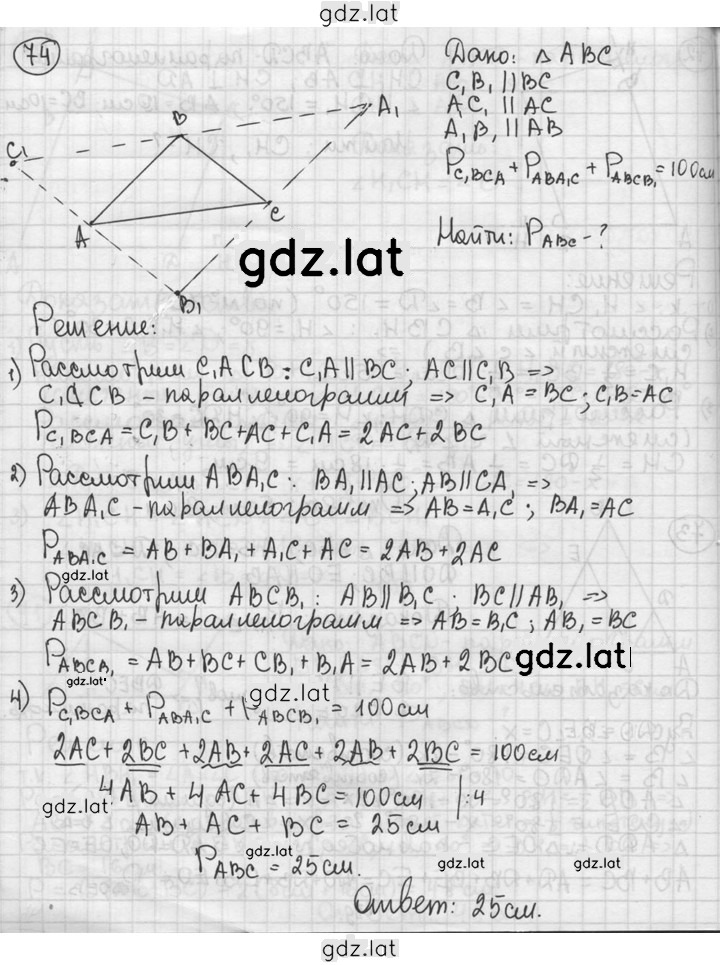 gdz.lat
74
Дано: △ ABC
C₁B₁ || BC
AC₁ || AC
A₁B₁ || AB
P_C₁BCA + P_ABA₁C + P_ABCB₁ = 100см
Найти: P_ABC - ?
C₁
B
A₁
A
C
B₁
gdz.lat
Решение:
1) Рассмотрим C₁ACB: C₁A || BC; AC || C₁B ⇒
C₁ACB - параллелограмм ⇒ C₁A = BC; C₁B = AC
P_C₁BCA = C₁B + BC + AC + C₁A = 2AC + 2BC
2) Рассмотрим ABA₁C: BA₁ || AC; AB || CA₁ ⇒
ABA₁C - параллелограмм ⇒ AB = A₁C; BA₁ = AC
P_ABA₁C = AB + BA₁ + A₁C + AC = 2AB + 2AC
gdz.lat
3) Рассмотрим ABCB₁: AB || B₁C; BC || AB₁ ⇒
ABCB₁ - параллелограмм ⇒ AB = B₁C; AB₁ = BC
P_ABCB₁ = AB + BC + CB₁ + B₁A = 2AB + 2BC
gdz.lat
gdz.lat
gdz.lat
4) P_C₁BCA + P_ABA₁C + P_ABCB₁ = 100см
2AC + 2BC + 2AB + 2AC + 2AB + 2BC = 100см
4AB + 4AC + 4BC = 100см |:4
gdz.lat
AB + AC + BC = 25см
gdz.lat
P_ABC = 25см.
gdz.lat
gdz.lat
Ответ: 25см.
gdz.lat